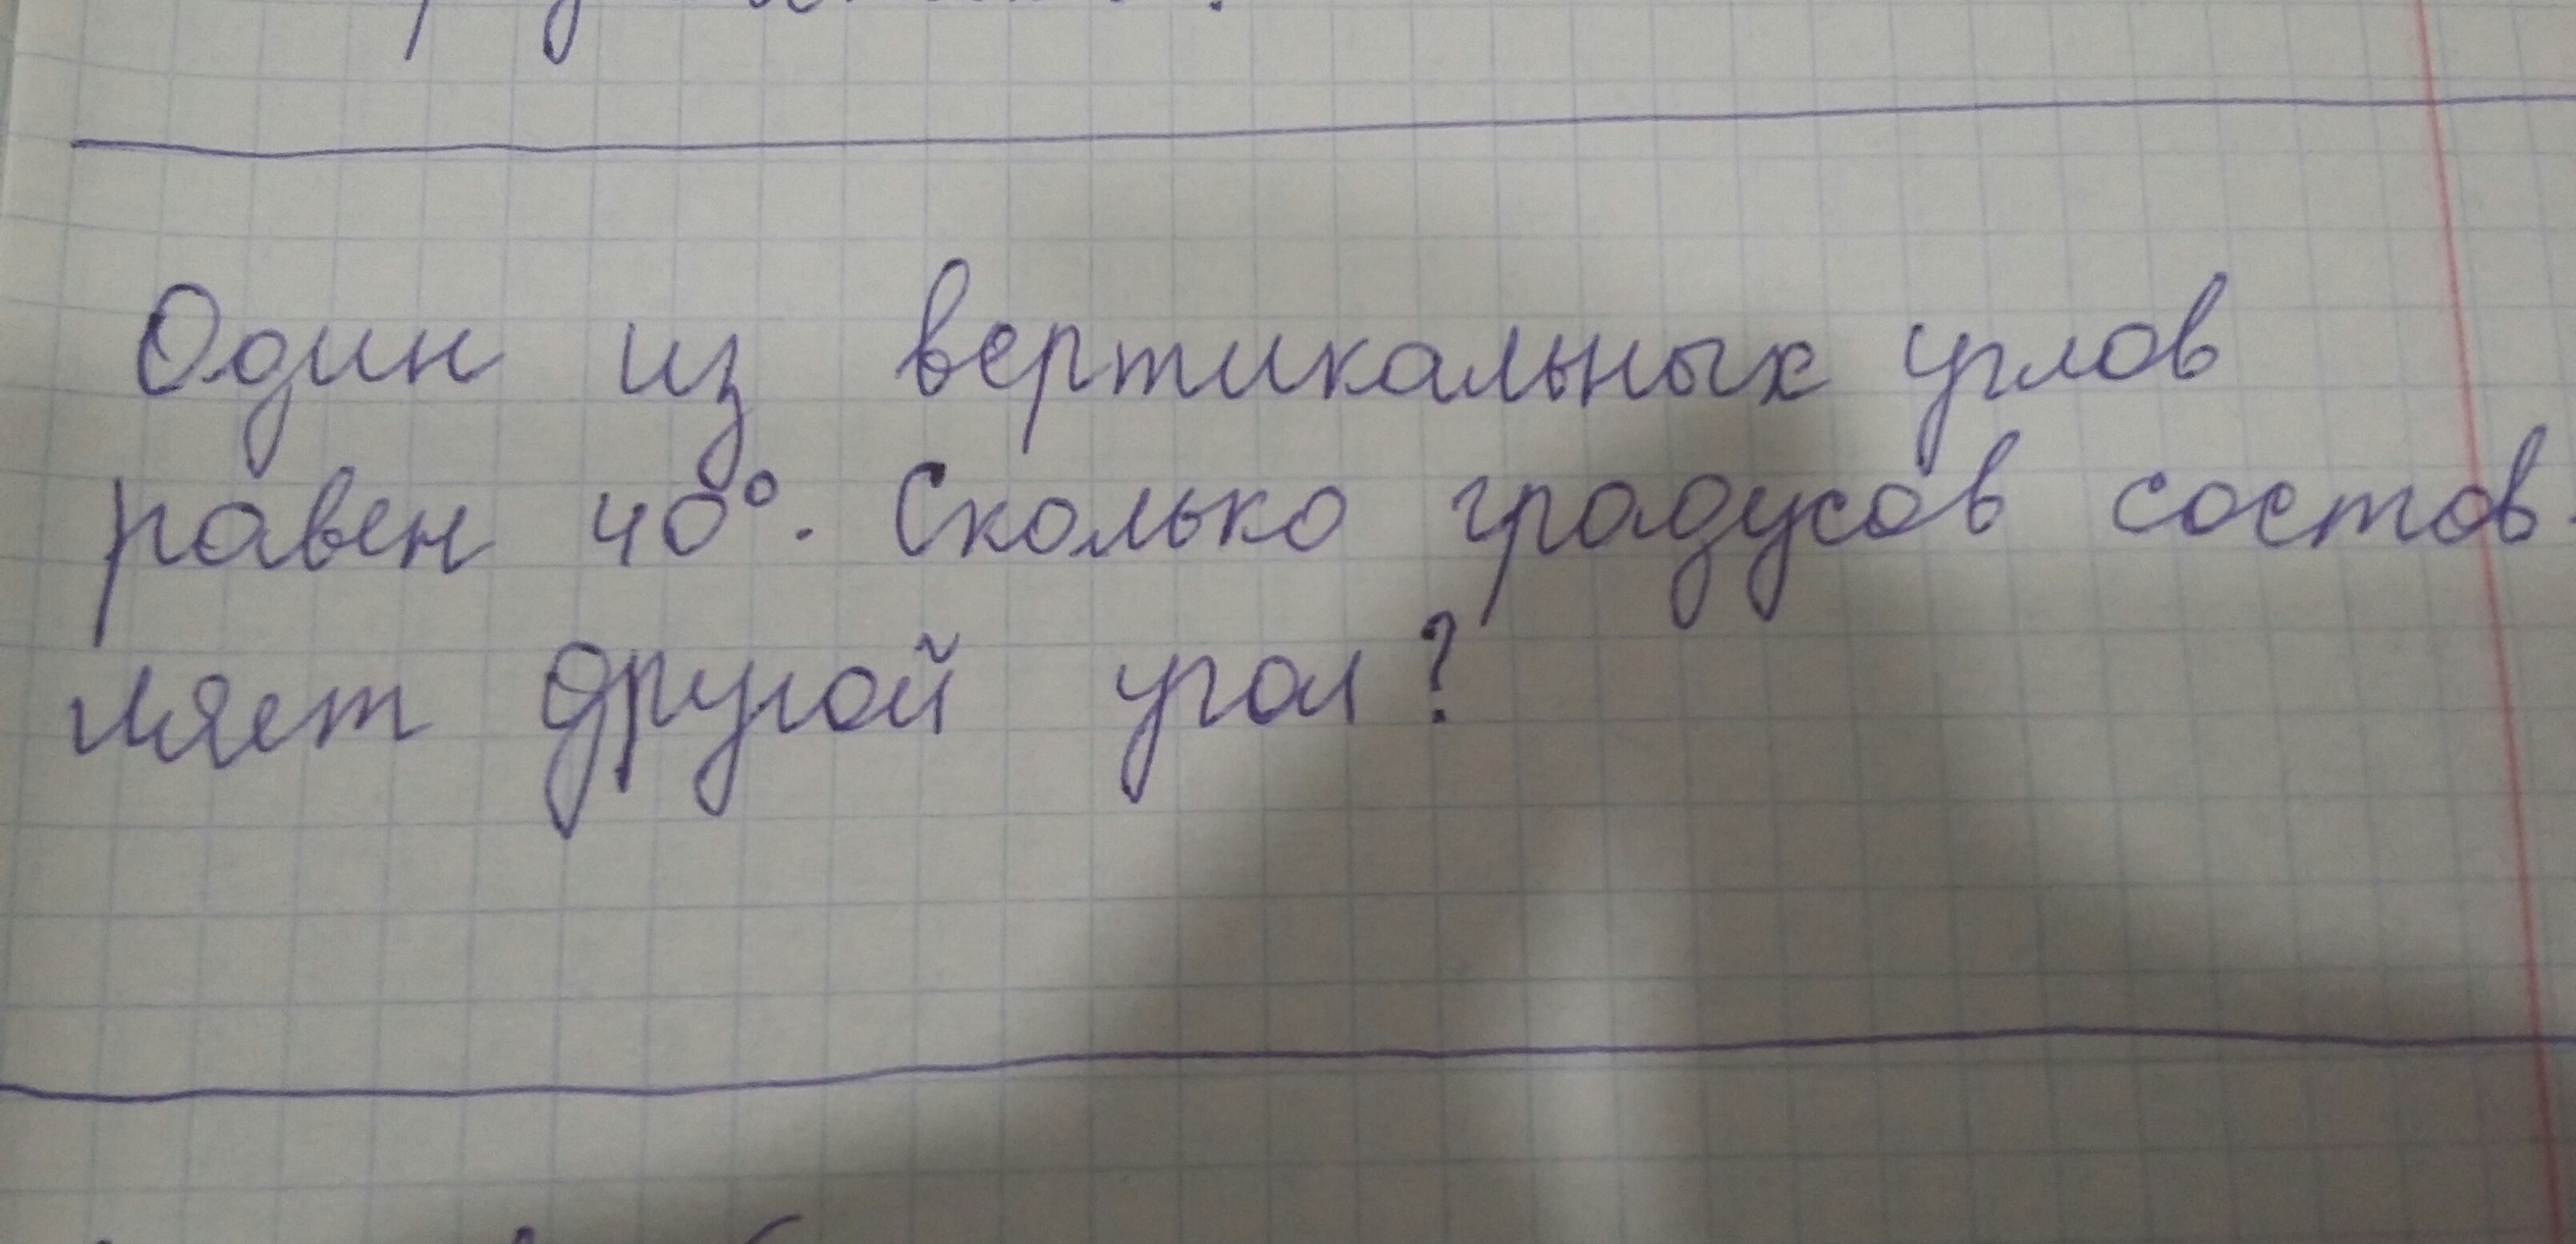 Один из вертикальных углов
равен 40°. Сколько градусов состав-
ляет другой угол?